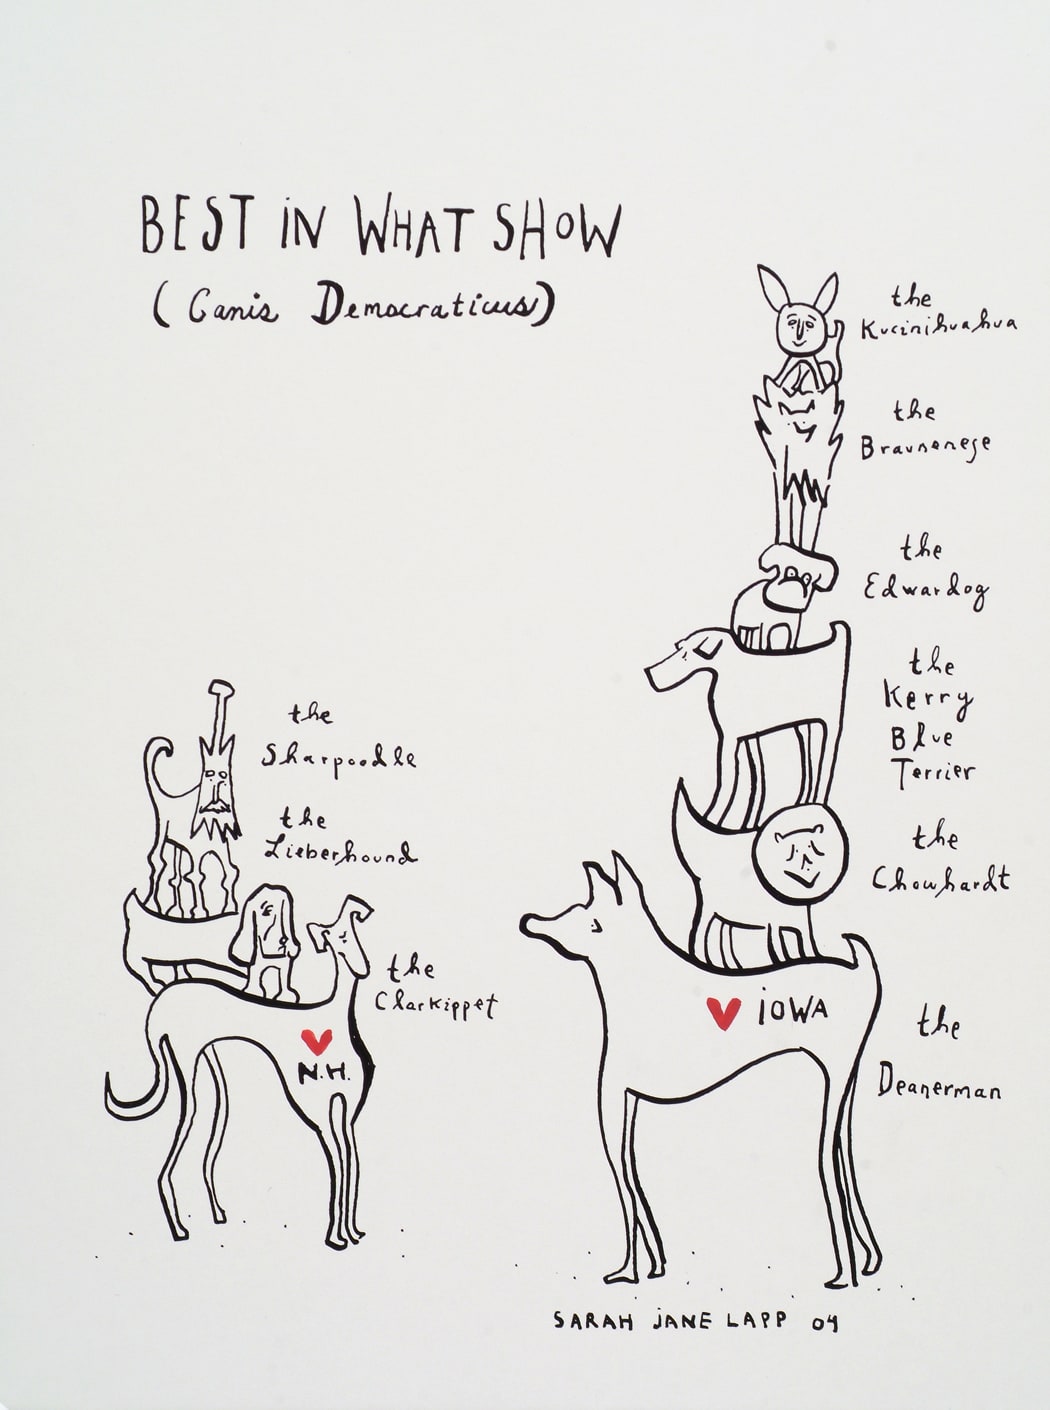 BEST iN WHAT SHOW
(Canis Democraticus)
the
Kucinihuahua
the
Braunenese
the
Edwardog
the
Kerry
Blue
Terrier
the
Chowhardt
iOWA
the
Deanerman
the
Sharpoodle
the
Lieberhound
the
Clarkippet
N.H.
SARAH JANE LAPP 04